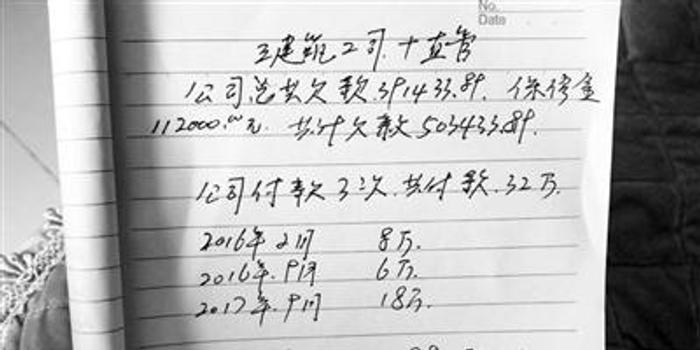 No.
Date
五建筑工司.十直管
公司总共欠款.391433.89. 保修金
112000.00元. 共计欠款503433.89.
公司付款3次.共付款.32万.
2016年2月 8万.
2016年.9月 6万.
2017年.9月 18万.